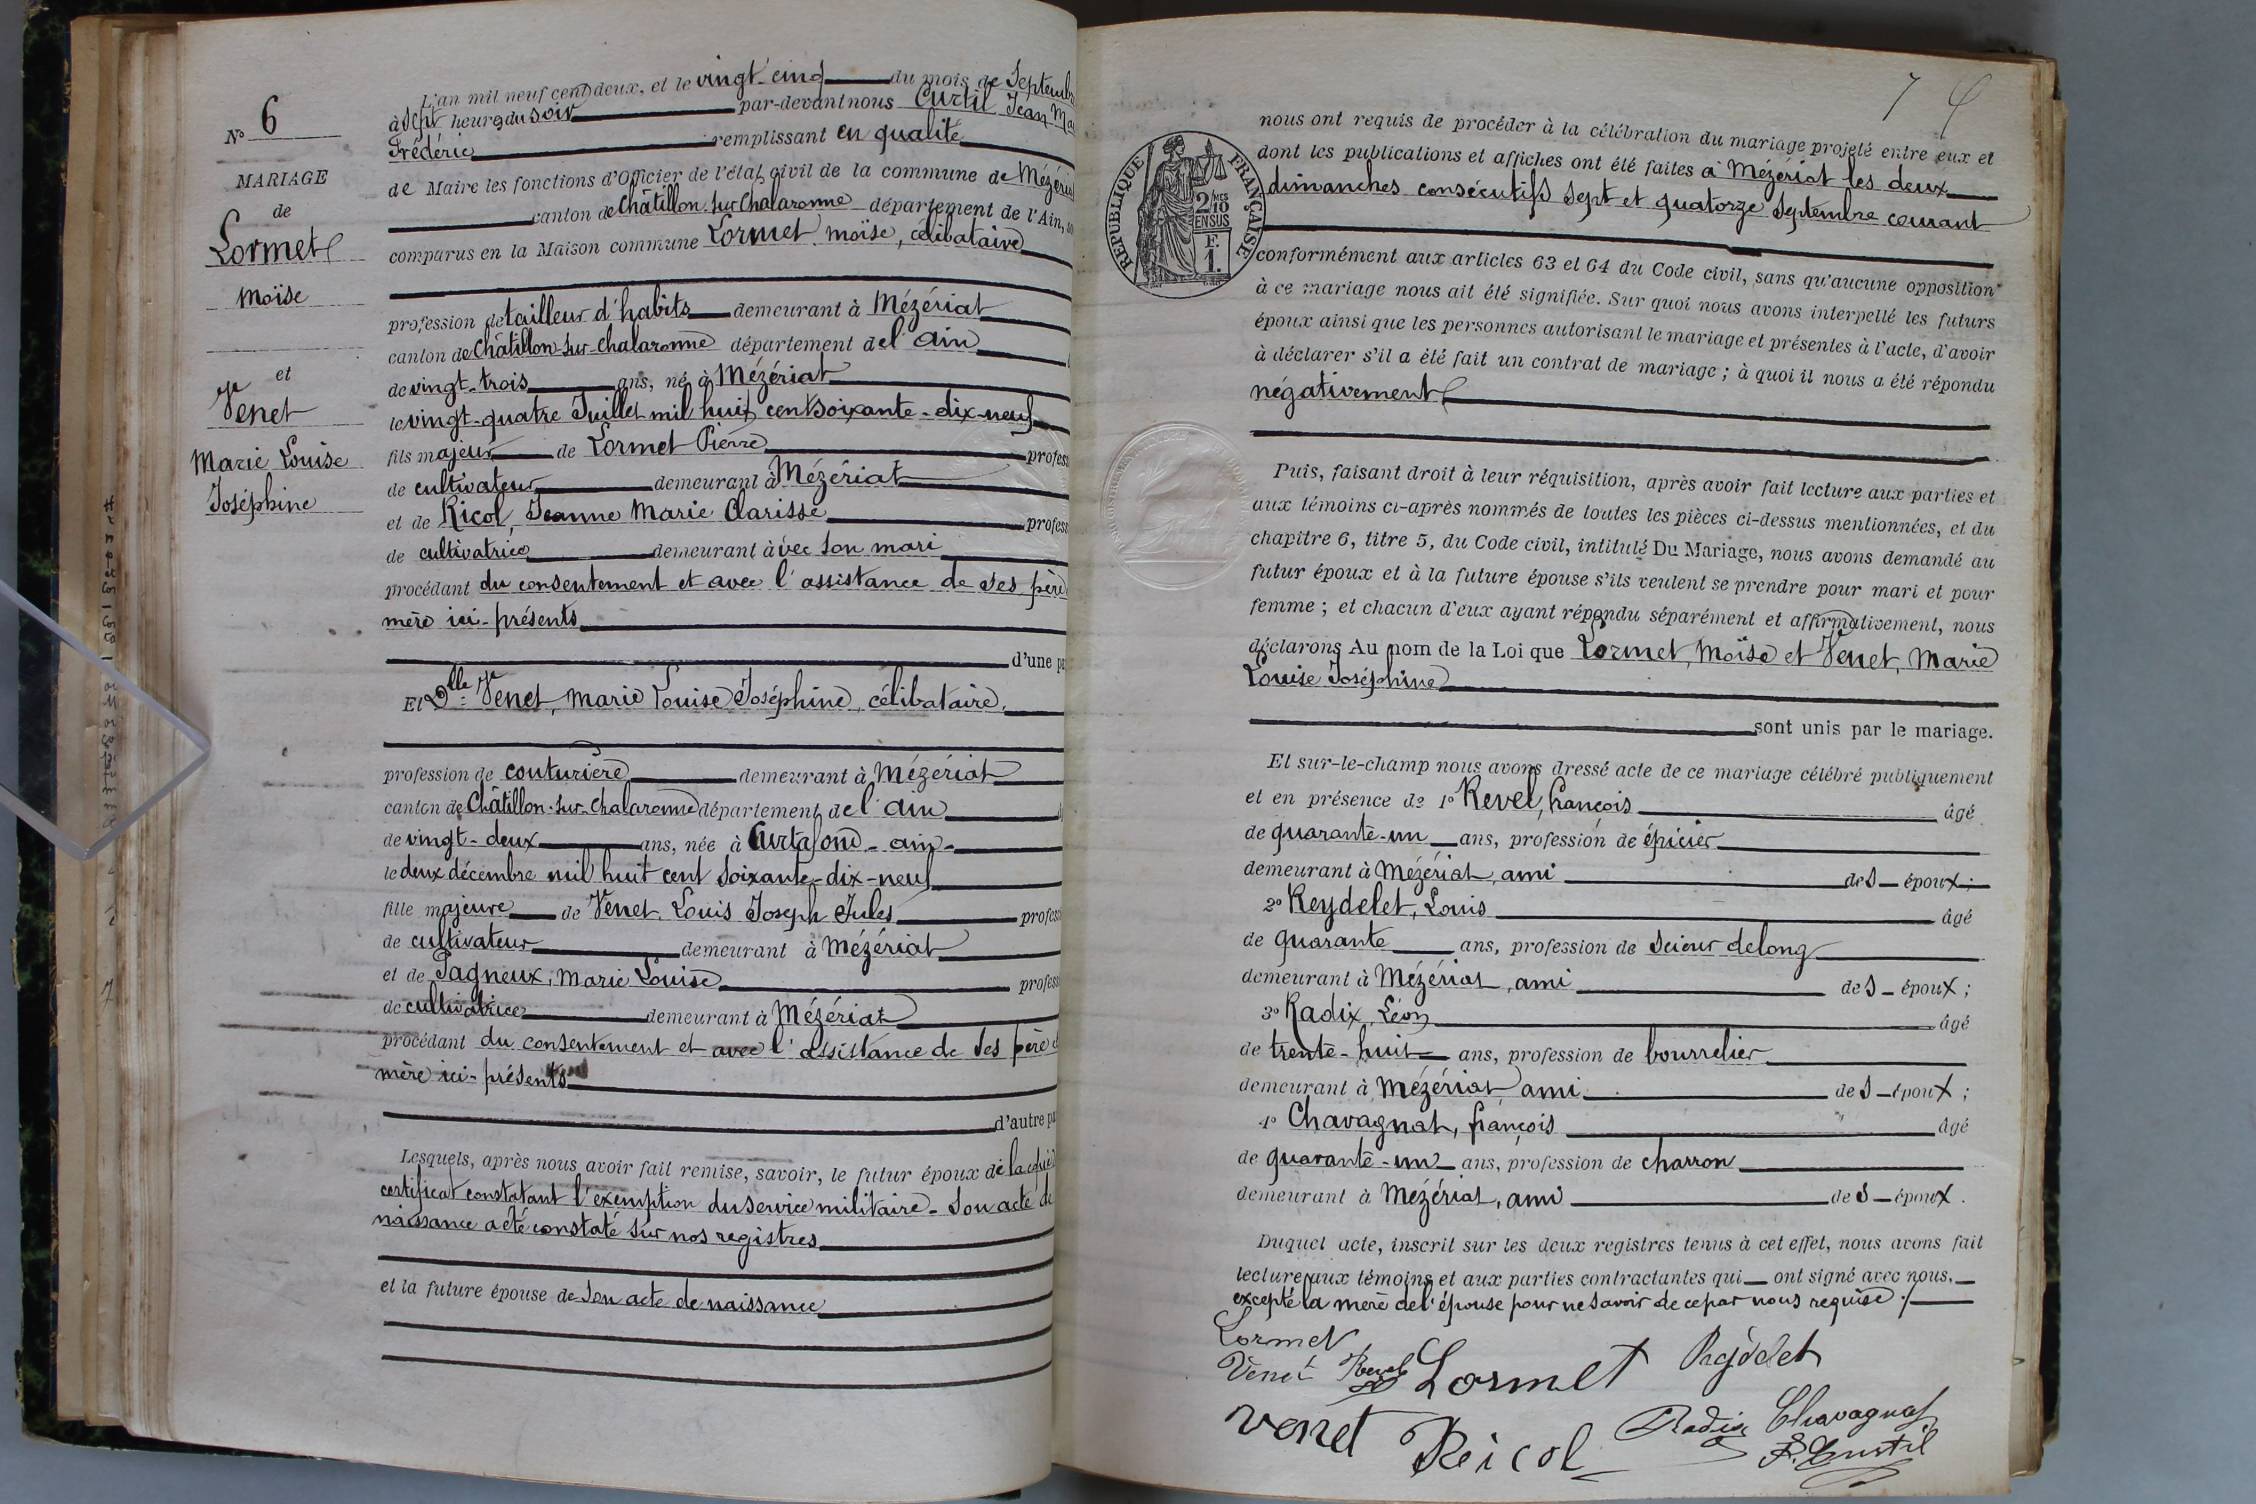 N° 6
MARIAGE
de
Lormet
Moïse
et
Venet
Marie Louise
Joséphine
L'an mil neuf cent deux, et le vingt-cinq du mois de Septemb
à sept heures du soir par-devant nous Curtil Jean Ma
Frédéric remplissant en qualité
de Maire les fonctions d'Officier de l'état civil de la commune de Mézéria
canton de Châtillon-sur-Chalaronne département de l'Ain,
comparus en la Maison commune Lormet moïse, célibataire
profession de tailleur d'habits demeurant à Mézériat
canton de Châtillon-sur-Chalaronne département de l'ain
de vingt-trois ans, né à Mézériat
le vingt-quatre Juillet mil huit cent soixante-dix-neuf
fils majeur de Lormet Pierre profess
de cultivateur demeurant à Mézériat
et de Ricol, Jeanne Marie Clarisse profess
de cultivatrice demeurant à vec son mari
procédant du consentement et avec l'assistance de ses père
mère ici-présents
d'une pa
Et Dlle Venet, Marie Louise Joséphine, célibataire,
profession de couturière demeurant à Mézériat
canton de Châtillon-sur-Chalaronne département de l'ain
de vingt-deux ans, née à Curtafond-ain-
le deux décembre mil huit cent soixante-dix-neuf
fille majeure de Venet, Louis Joseph Jules profess
de cultivateur demeurant à Mézériat
et de Pagneux, Marie Louise profess
de cultivatrice demeurant à Mézériat
procédant du consentement et avec l'assistance de ses père e
mère ici-présents
d'autre pa
Lesquels, après nous avoir fait remise, savoir, le futur époux de la copie
certificat constatant l'exemption du service militaire - Son acte de
naissance a été constaté sur nos registres
et la future épouse de son acte de naissance
7
nous ont requis de procéder à la célébration du mariage projeté entre eux et
dont les publications et affiches ont été faites à Mézériat les deux
dimanches consécutifs sept et quatorze Septembre courant
RÉPUBLIQUE FRANÇAISE
2 MES
10
EN SUS
F.
1.
conformément aux articles 63 et 64 du Code civil, sans qu'aucune opposition
à ce mariage nous ait été signifiée. Sur quoi nous avons interpellé les futurs
époux ainsi que les personnes autorisant le mariage et présentes à l'acte, d'avoir
à déclarer s'il a été fait un contrat de mariage ; à quoi il nous a été répondu
négativement
Puis, faisant droit à leur réquisition, après avoir fait lecture aux parties et
aux témoins ci-après nommés de toutes les pièces ci-dessus mentionnées, et du
chapitre 6, titre 5, du Code civil, intitulé Du Mariage, nous avons demandé au
futur époux et à la future épouse s'ils veulent se prendre pour mari et pour
femme ; et chacun d'eux ayant répondu séparément et affirmativement, nous
déclarons Au nom de la Loi que Lormet, Moïse et Venet, Marie
Louise Joséphine
sont unis par le mariage.
Et sur-le-champ nous avons dressé acte de ce mariage célébré publiquement
et en présence de 1° Revel, françois âgé
de quarante-un ans, profession de épicier
demeurant à Mézériat, ami des époux ;
2° Reydelet, Louis âgé
de quarante ans, profession de scieur de long
demeurant à Mézériat, ami des époux ;
3° Radix, Léon âgé
de trente-huit ans, profession de bourrelier
demeurant à Mézériat ami des époux ;
4° Chavagnat, françois âgé
de quarante-un ans, profession de charron
demeurant à Mézériat, ami des époux.
Duquel acte, inscrit sur les deux registres tenus à cet effet, nous avons fait
lecture aux témoins et aux parties contractantes qui ont signé avec nous,
excepté la mère de l'épouse pour ne savoir de ce par nous requise ./.
Lormet
Venet Revel Lormet Reydelet
venet Reicol Radix Chavagnat
F. Curtil